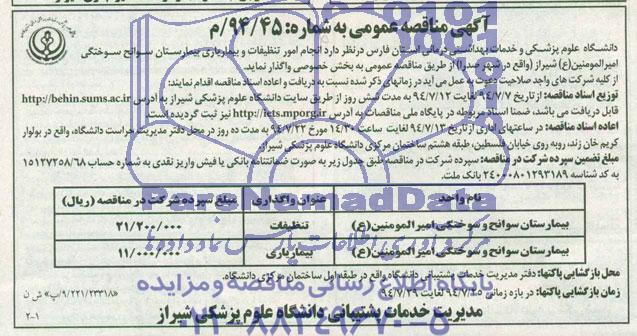 آگهی مناقصه عمومی به شماره: ۹۴/۴۵/م
دانشگاه علوم پزشکی و خدمات بهداشتی درمانی استان فارس درنظر دارد انجام امور تنظیفات و بیماربری بیمارستان سوانح سوختگی
امیرالمومنین(ع) شیراز (واقع در شهر صدرا) از طریق مناقصه عمومی به بخش خصوصی واگذار نماید.
از کلیه شرکت های واجد صلاحیت دعوت به عمل می آید در زمانهای ذکر شده نسبت به دریافت و اعاده اسناد مناقصه اقدام نمایند:
توزیع اسناد مناقصه: از تاریخ ۹۴/۷/۷ لغایت ۹۴/۷/۱۲ به مدت شش روز از طریق سایت دانشگاه علوم پزشکی شیراز به ادرس http://behin.sums.ac.ir
قابل دریافت می باشد، ضمنا اسناد مربوطه در پایگاه ملی مناقصات به آدرس http://iets.mporg.ir نیز ثبت گردیده است.
اعاده اسناد مناقصه: در ساعتهای اداری از تاریخ ۹۴/۷/۱۳ لغایت ساعت ۱۴/۳۰ مورخ ۹۴/۷/۲۲ به مدت ده روز در محل دفتر مدیریت حراست دانشگاه، واقع در بولوار
کریم خان زند، روبه روی خیابان فلسطین، طبقه هشتم ساختمان مرکزی دانشگاه علوم پزشکی شیراز.
مبلغ تضمین سپرده شرکت در مناقصه: سپرده شرکت در مناقصه طبق جدول زیر به صورت ضمانتنامه بانکی یا فیش واریز نقدی به شماره حساب ۱۵۱۲۷۲۵۸/۶۸
به کد شناسه ۲۴۰۰۰۸۰۱۲۹۳۱۸۹ بانک ملت.
نام واحد عنوان واگذاری مبلغ سپرده شرکت در مناقصه (ریال)
بیمارستان سوانح و سوختگی امیرالمومنین (ع) تنظیفات ۲۱/۲۰۰/۰۰۰
بیمارستان سوانح و سوختگی امیرالمومنین (ع) بیماربری ۱۱/۰۰۰/۰۰۰
محل بازگشایی پاکتها: دفتر مدیریت خدمات پشتیبانی دانشگاه واقع در طبقه اول ساختمان مرکزی دانشگاه.
زمان بازگشایی پاکتها: در بازه زمانی ۹۴/۷/۲۵ لغایت ۹۴/۷/۲۹
«۹/۲۲۱/۲۳۳۱۸/پ» ش ن
مدیریت خدمات پشتیبانی دانشگاه علوم پزشکی شیراز
۲-۱
ParsNamadData
پایگاه اطلاع رسانی مناقصه و مزایده
۰۲۱-۸۸۳۴۹۶۷۰-۵